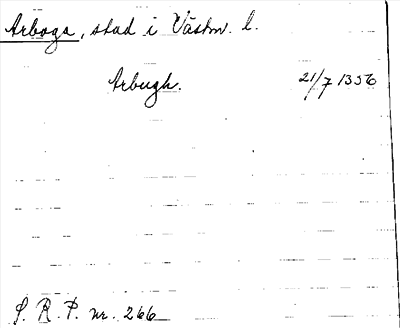 Arboga, stad i Västm. l.
Arbugh. 21/7 1356
S. R. P. nr. 266